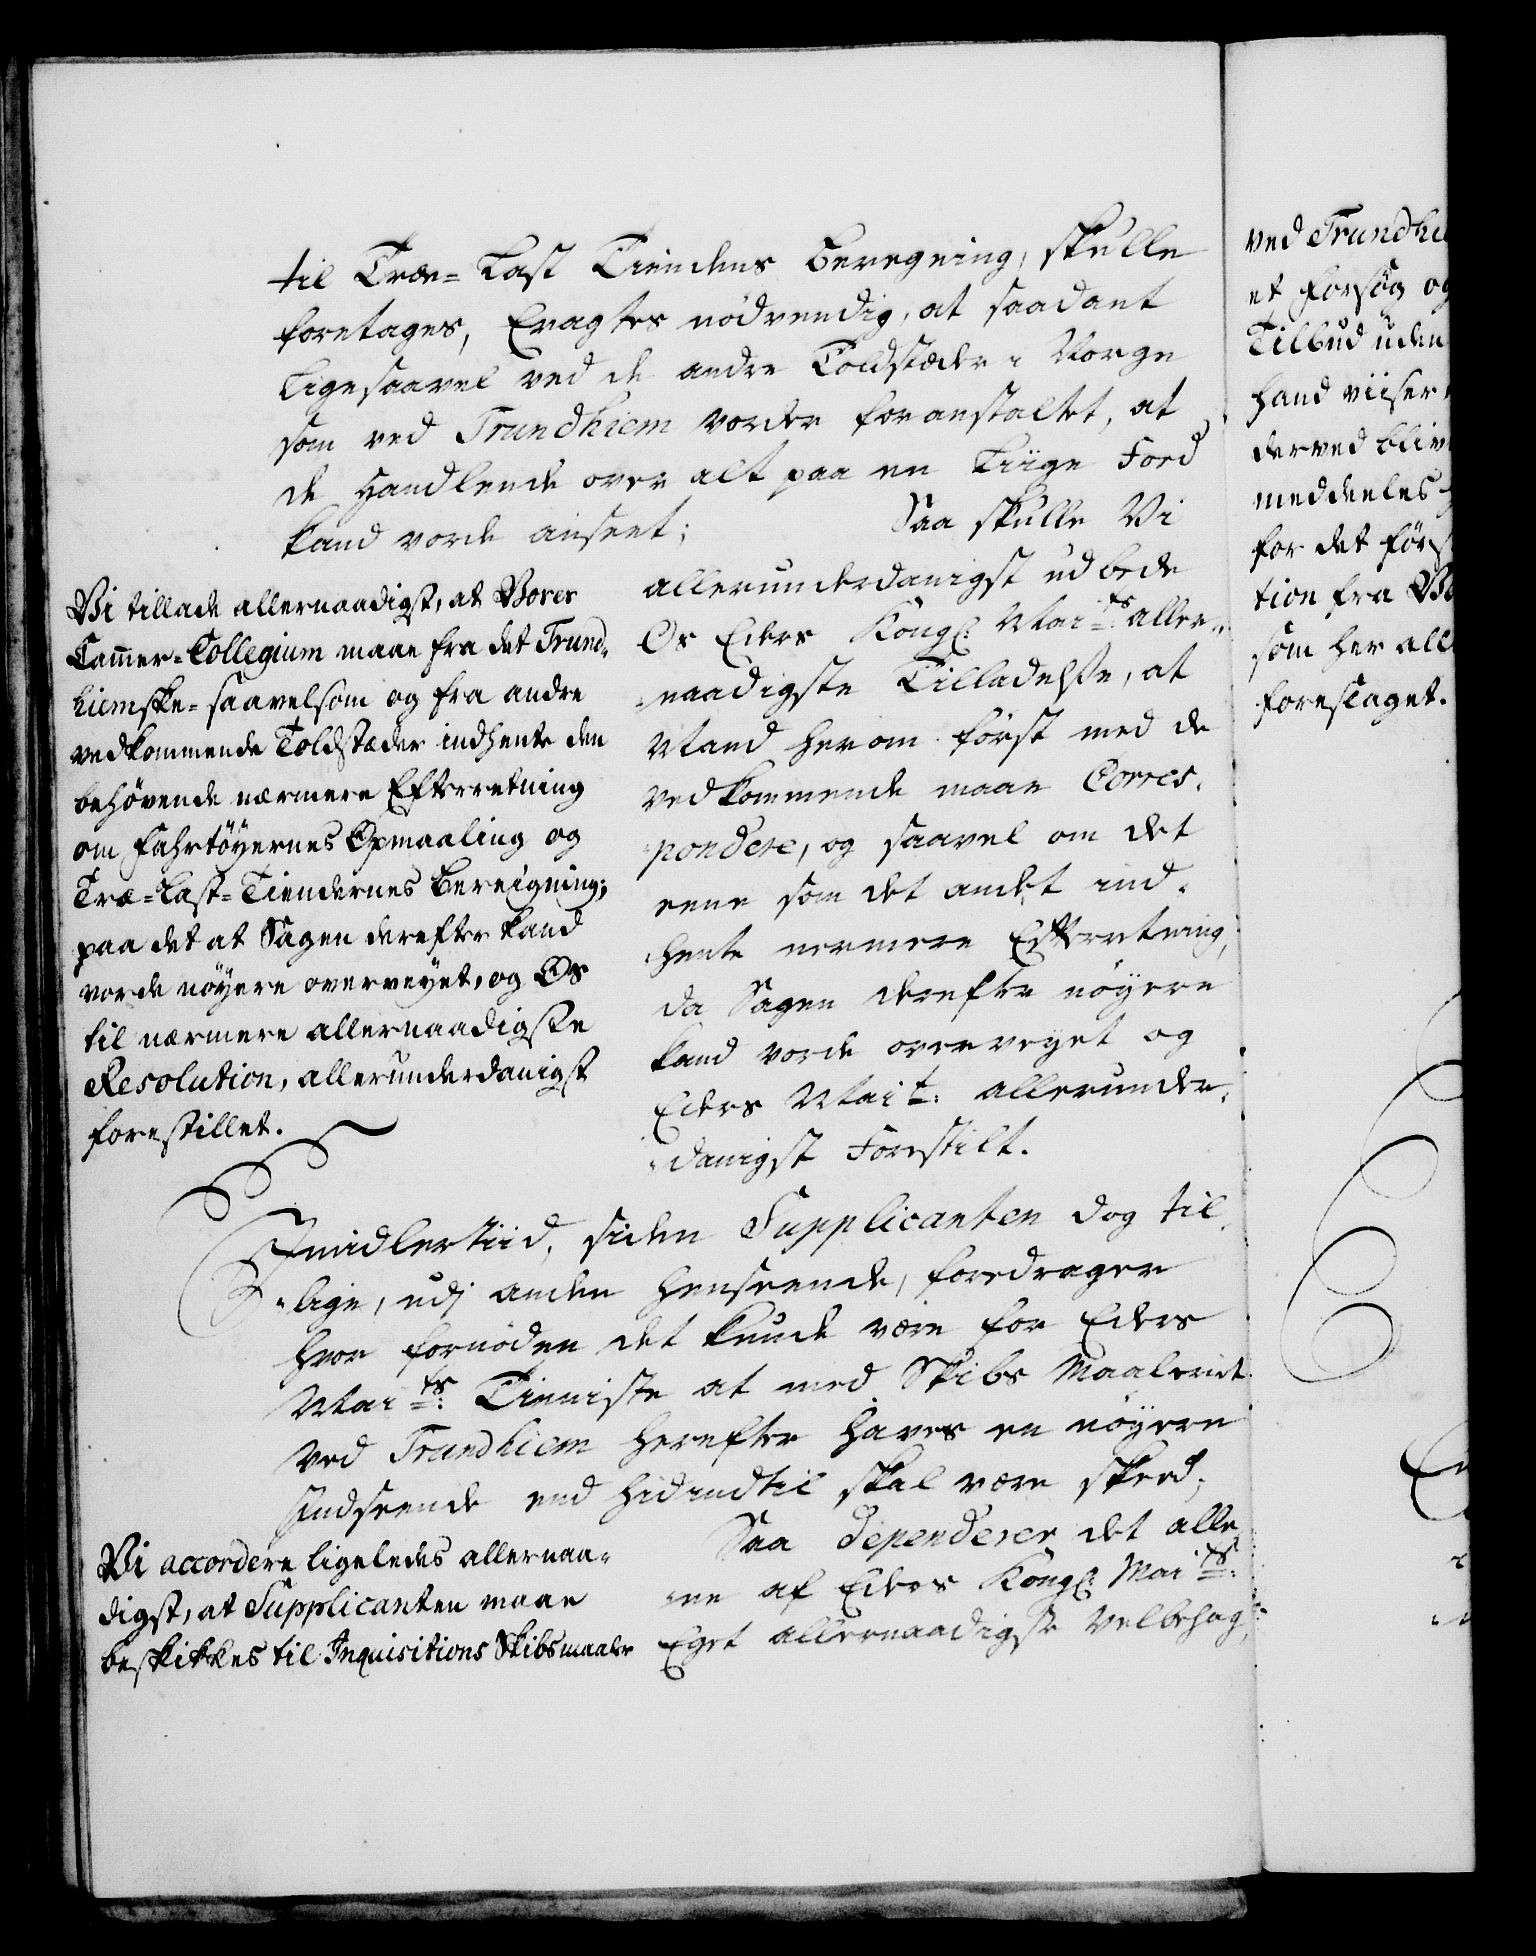 til Træe-Last Tiendens Beregning, skulle
foretages, Eragtes nödvendig, at saadant
Ligesaavel ved de andre Toldstæder i Norge
som ved Trundhiem vorder foranstaltet, at
de Handlende over alt paa en Liige Food
kand vorde anseet;
Saa skulle Vi
allerunderdanigst udbede
Os Eders Kongl: Mai:ts aller-
naadigste Tilladelsse, at
Mand herom först med de
vedkommende maae Corres-
pondere, og saavel om det
eene som det andet ind-
hente nermere Efterretning,
da Sagen derefter nöyere
kand vorde overveyet og
Eders Mai:t allerunder-
danigst Forestilt.
Vi tillade allernaadigst, at Vores
Cammer-Collegium maae fra det Trund-
hiemske- saavelsom og fra andre
vedkommende Toldstæder indhente den
behövende nærmere Efterretning
om Fahrtöyernes Opmaaling og
Træ-Last-Tiendernes Bereigning;
paa det at Sagen derefter kand
vorde nöyere overveyet, og Os
til nærmere allernaadigste
Resolution, allerunderdanigst
forestillet.
Imidlertiid, siden Supplicanten dog til-
lige, udj anden Henseende, foredrager
hvor fornöden det kunde være for Eders
Mai:ts Tienniste at med Skibs Maaleriet
ved Trundhiem herefter haves en nöyere
Indseende end hidindtil skal være skeed;
Saa dependerer det alle-
ne af Eders Kongl: Mai:ts
Eget allernaadigste Velbehag,
Vi accordere ligeledes allernaa-
digst, at Supplicanten maae
beskikkes til Inquisitions Skibsmaaler
ved Trundhie
et forsög og
Tilbud uden
hand viiser
derved bliv
meddeeles
for det förs
tion fra Vo
som her all
foreslaget.